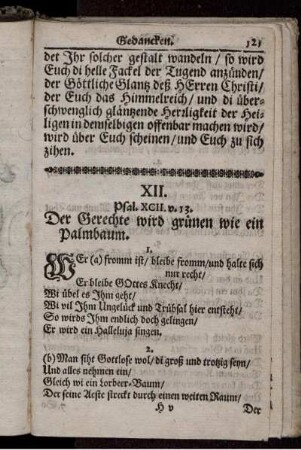 Gedancken. 121
det Ihr solcher gestalt wandeln / so wird
Euch di helle Fackel der Tugend anzünden/
der Göttliche Glantz deß HErren Christi/
der Euch das Himmelreich/ und di über-
schwenglich gläntzende Herzligkeit der Hei-
ligen in demselbigen offenbar machen wird/
wird über Euch scheinen/und Euch zu sich
zihen.
XII.
Psal. XCII. v. 13.
Der Gerechte wird grünen wie ein
Palmbaum.
1.
WEr (a) fromm ist/ bleibe fromm/und halte sich
nur recht/
Er bleibe GOttes Knecht/
Wi übel es Ihm geht/
Wi vil Ihm Ungelück und Trübsal hier entsteht/
So wirds Ihm endlich doch gelingen/
Er wird ein Halleluja singen.
2.
(b) Man siht Gottlose wol/ di groß und trotzig seyn/
Und alles nehmen ein/
Gleich wi ein Lorbeer-Baum/
Der seine Aeste streckt durch einen weiten Raum/
H v Der